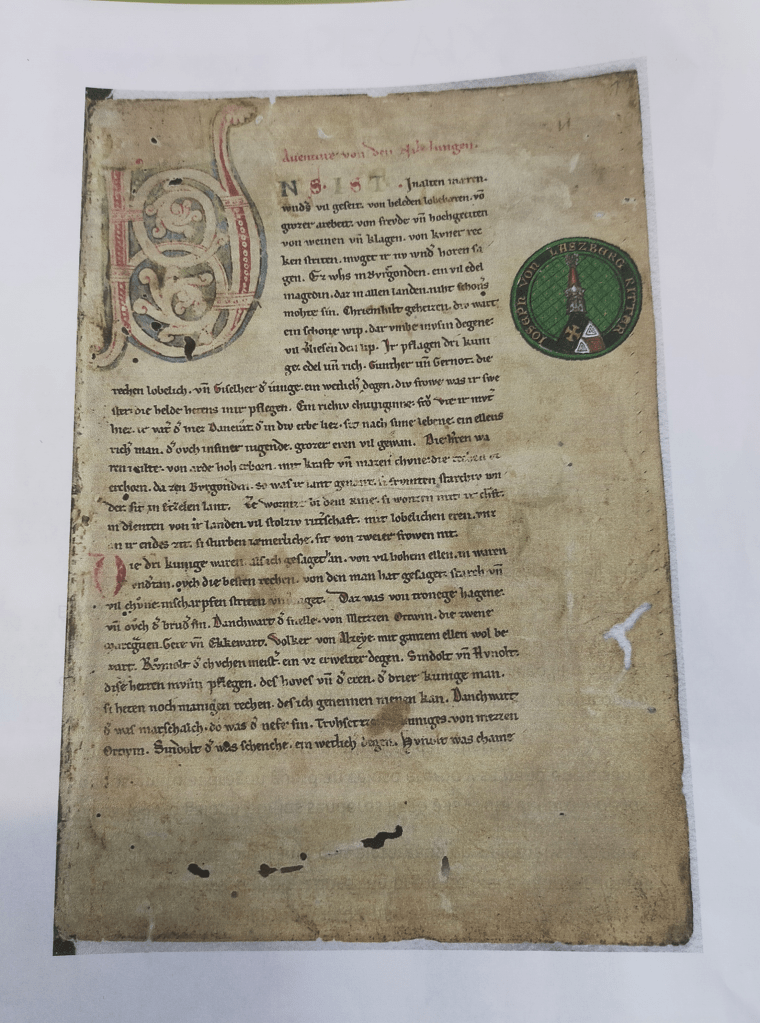 Auenture von den Nibelungen.
VNS IST. Jnalten mæren.
wnds vil geseit. von heleden lobebæren. vō
grozer arebeit. von frevde vn̄ hochgeciten
von weinen vn̄ klagen. von kvner rec
ken striten. mvget ir nv wnd horen sa
gen. Ez whs in Bvrgonden. ein vil edel
magedin. daz in allen landen. niht schoners
mohte sin. Chriemhilt geheizen. div wart
ein schone wip. dar vmbe mvsin degene.
vil vliesen den lip. Ir pflagen dri kuni
ge. edel vn̄ rich. Gunther vn̄ Gernot. die
rechen lobelich. vn̄ Giselher d͛ iunge. ein wetlich͛ degen. div frowe was ir swe
ster. die helde hetens inir pflegen. Ein richiv chuniginne. frō vte ir mvt͛
hiez. ir vat͛ d͛ hiez Dancrat. d͛ in div erbe liez. sit nach sime lebene. ein ellens
rich man. d͛ ovch insiner iugende. grozer eren vil gewan. Die h͛ren wa
ren milte. von arde hoh erborn. mit kraft vn̄ mazen chvne. die rechen vz
erchorn. da zen Bvrgonden. so was ir lant genant. si frvmten starchiv wn
der. sit in Etzelen lant. Ze wormze bi dem Rine. si wonten mit ir chft.
in dienten von ir landen. vil stolziv ritt͛schaft. mit lobelichen eren. vnz
an ir endes zit. si sturben iæmerliche. sit von zweier frowen nit.
Die dri kunige waren. als ich gesaget han. von vil hohem ellen. in waren
vndtan. ovch die besten rechen. von den man hat gesaget. starch vn̄
vil chvne. inscharpfen striten vnverzaget. Daz was von tronege hagene.
vn̄ ovch d͛ brud͛ sin. Danchwart d͛ snelle. von Mezzen Ortwin. die zwene
marcgͣuen. Gere vn̄ Ekkewart. Volker von Alzeye. mit ganzem ellen wol be
wart. Rvmolt d͛ chvchen meist͛. ein vz erwelter degen. Sindolt vn̄ Hvnolt.
dise herren mvsin pflegen. des hoves vn̄ d͛ eren. d͛ drier kunige man.
si heten noch manigen rechen. des ich genennen nienen kan. Danchwart
d͛ was marschalch. do was d͛ nefe sin. Truhsetze des kuniges. von mezzen
Ortwin. Sindolt d͛ was schenche. ein wetlich degen. Hvnolt was chame
IOSEPH VON LASZBERG RITTER